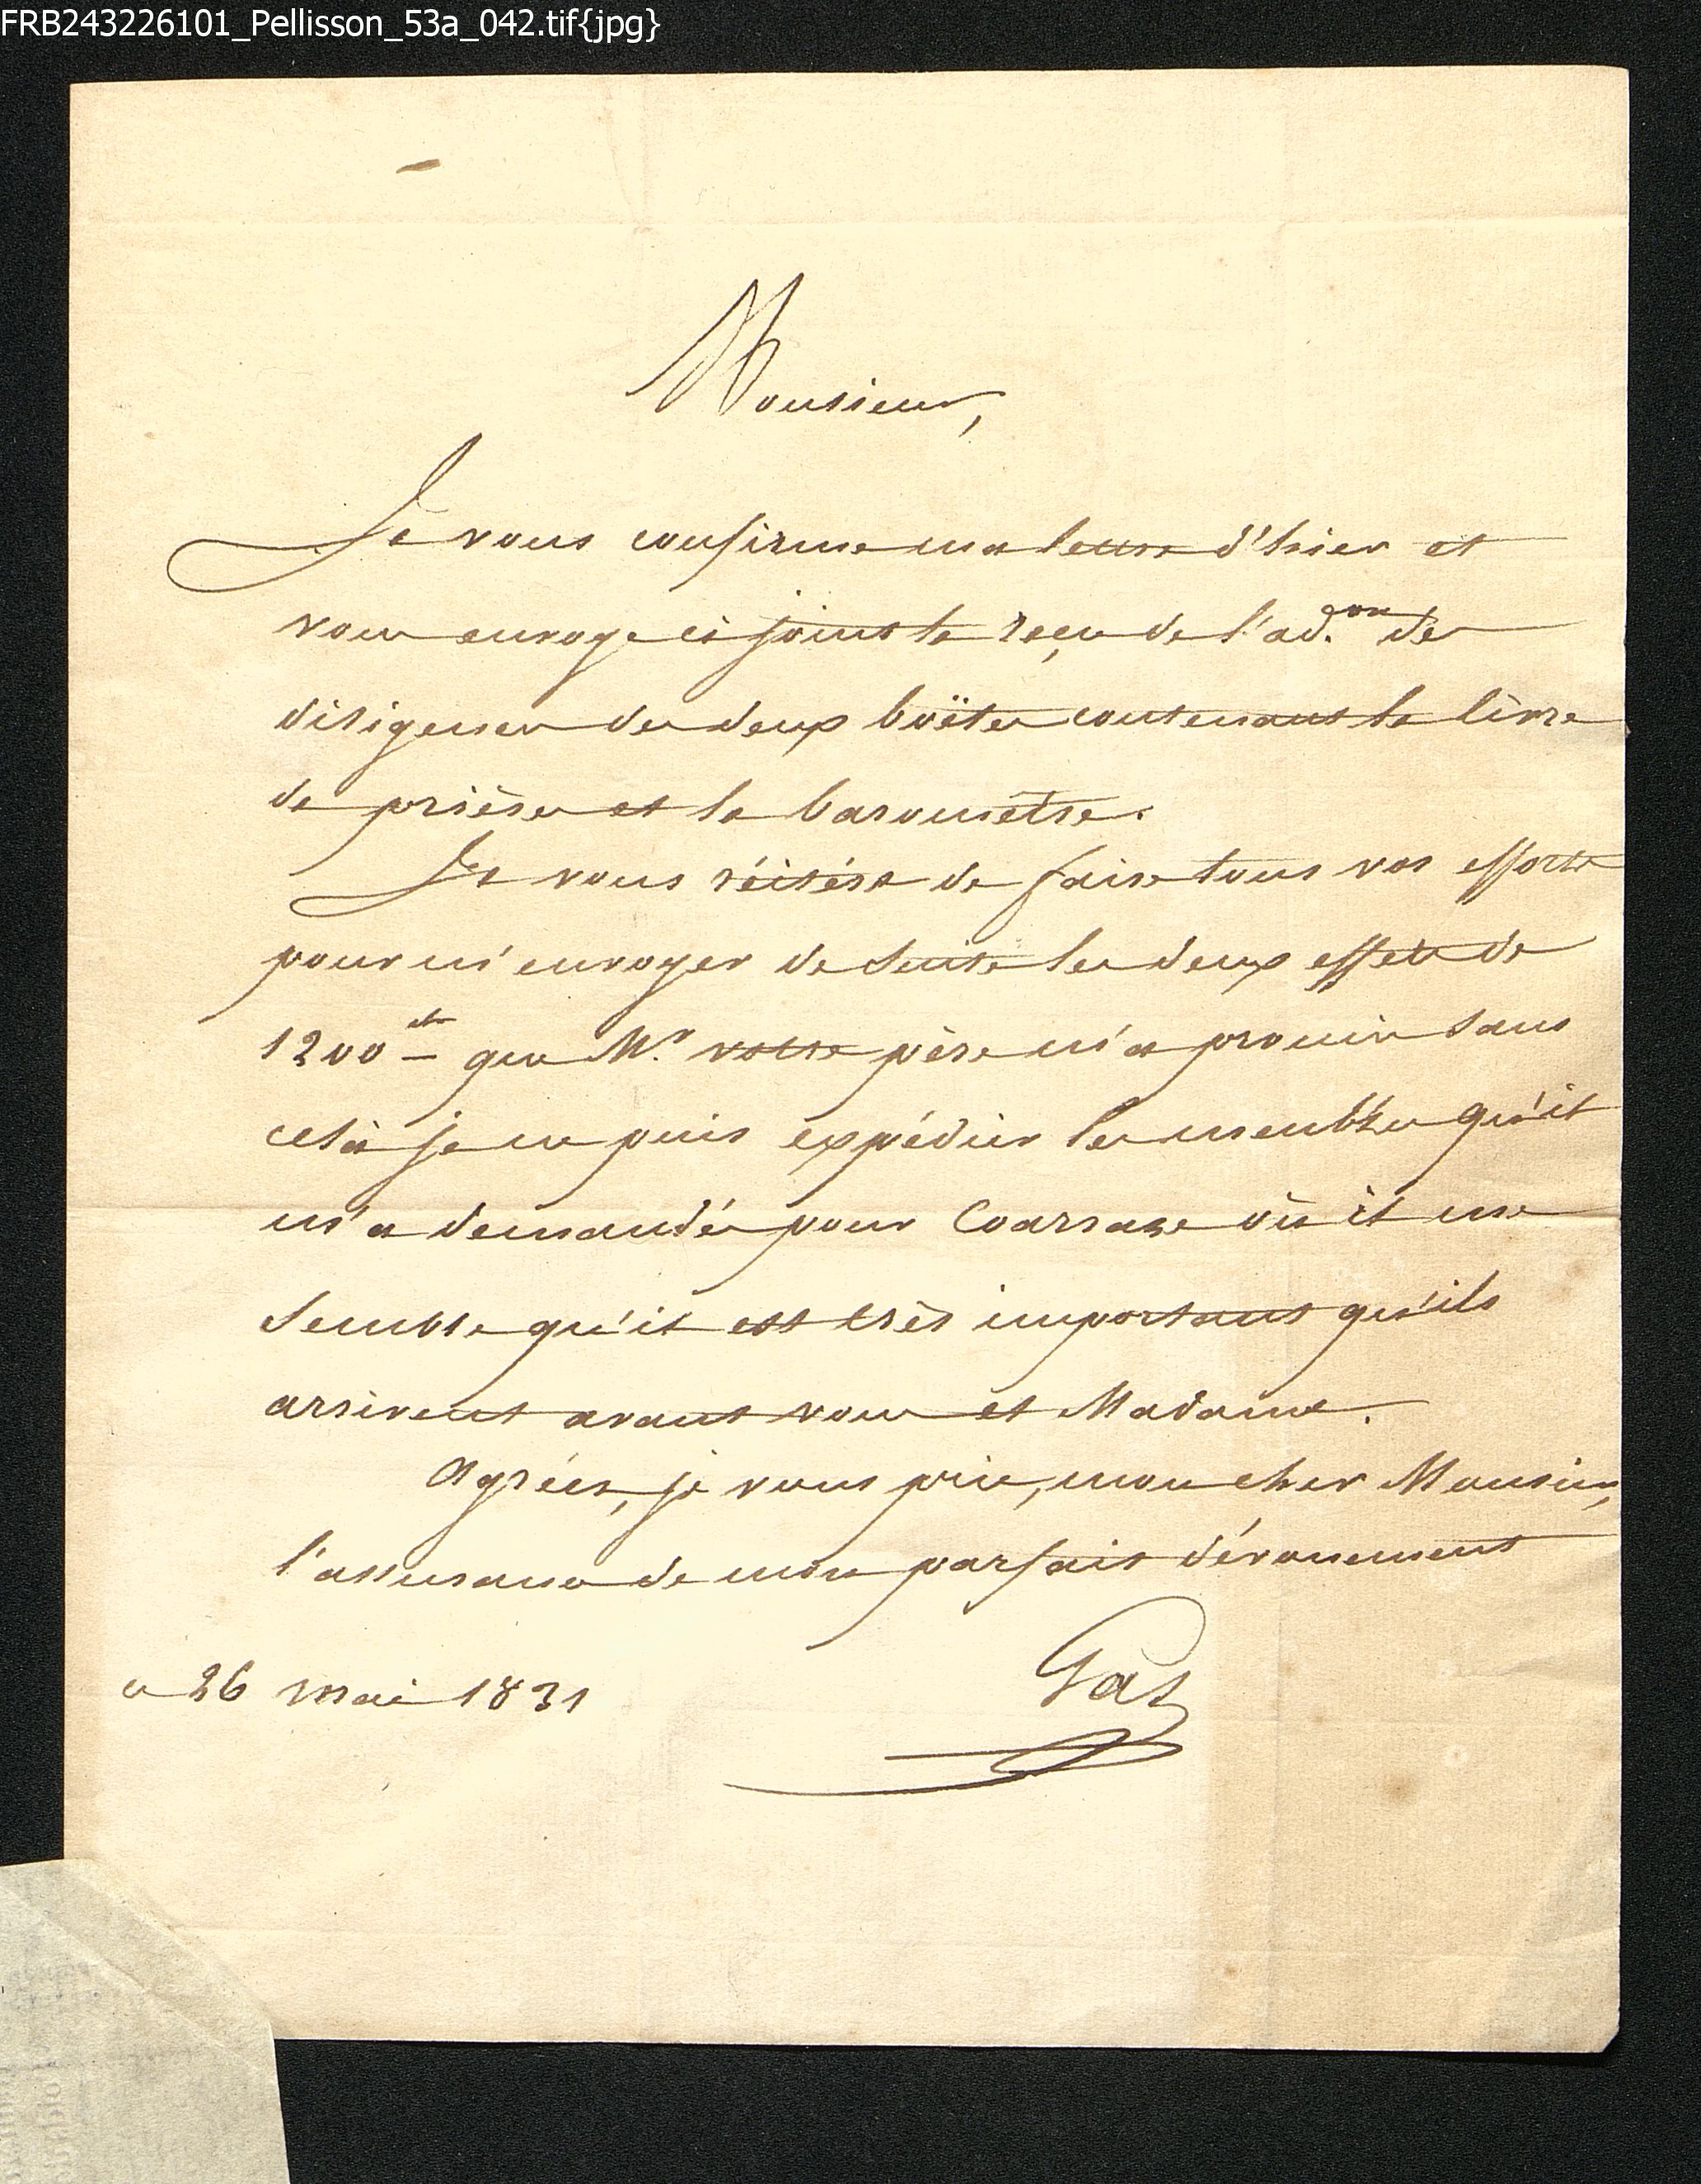 FRB243226101_Pellisson_53a_042.tif{jpg}
Monsieur,
Je vous confirme ma lettre d'hier et
vous envoye ci joint le reçu de l'ad.on des
diligences des deux boëtes contenant le livre
de prières et le baromètre.
Je vous réitère de faire tous vos efforts
pour m'envoyer de suite les deux effets de
1200 tt que Mr. votre père m'a promis sans
celà je ne puis expédier les meubles qu'il
m'a demandés pour Coarraze où il me
semble qu'il est très important qu'ils
arrivent avant vous et Madame.
Agréez, je vous prie, mon cher Monsieur,
l'assurance de mon parfait dévouement
ce 26 mai 1831